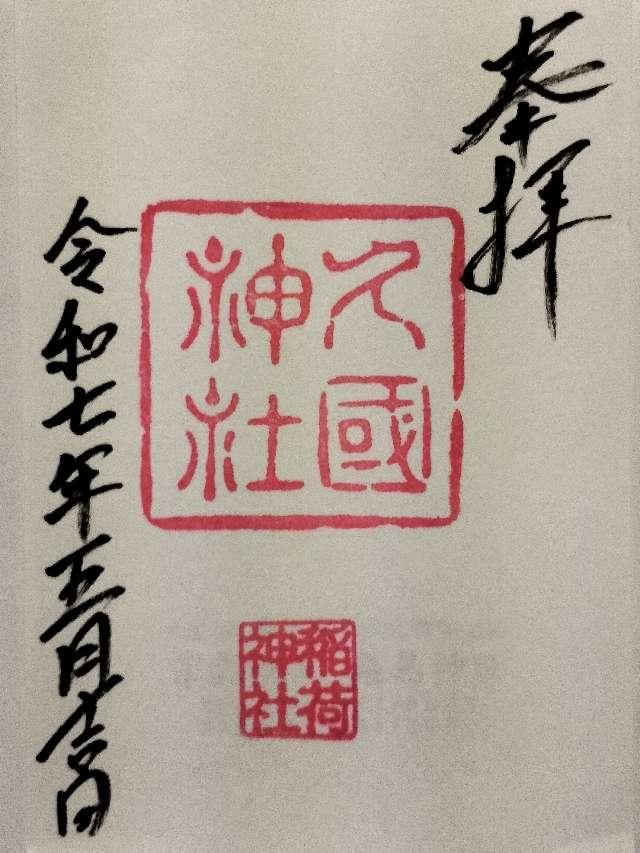 奉拝
久國
神社
稲荷
神社
令和七年五月吉日